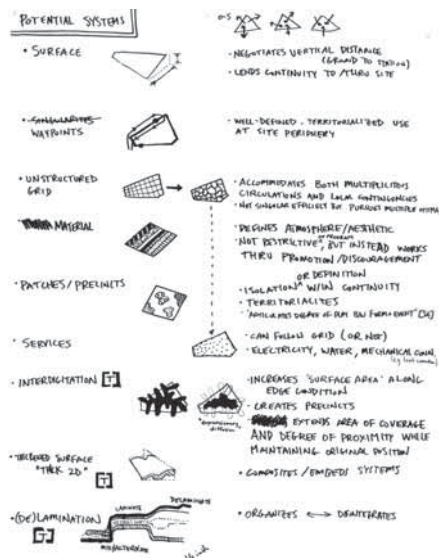 POTENTIAL SYSTEMS
• SURFACE
- NEGOTIATES VERTICAL DISTANCE
(GROUND TO STATION)
- LENDS CONTINUITY TO/THRU SITE
• SINGULARITIES
WAYPOINTS
- WELL-DEFINED, TERRITORIALIZED USE
AT SITE PERIPHERY
• UNSTRUCTURED
GRID
- ACCOMMODATES BOTH MULTIPLICITOUS
CIRCULATIONS AND LOCAL CONTINGENCIES
• NOT SINGULAR EFFICIENCY BUT PURSUES MULTIPLE OPTIMA
MATERIAL
- DEFINES ATMOSPHERE/AESTHETIC
- NOT RESTRICTIVE, BUT INSTEAD WORKS
THRU PROMOTION/DISCOURAGEMENT
OR DEFINITION
• PATCHES/PRECINCTS
- ISOLATION W/IN CONTINUITY
- TERRITORIALIZES
• SERVICES
- CAN FOLLOW GRID (OR NOT)
- ELECTRICITY, WATER, MECHANICAL CONN.
• INTERDIGITATION [T]
- INCREASES 'SURFACE AREA' ALONG
EDGE CONDITION
- CREATES PRECINCTS
EXTENDS AREA OF COVERAGE
AND DEGREE OF PROXIMITY WHILE
MAINTAINING ORIGINAL POSITION
SURFACE
"THICK 2D"
[T]
• COMPOSITES/EMBEDS SYSTEMS
• (DE)LAMINATION
[T]
LAMINATE
DELAMINATE
• ORGANIZES ⟷